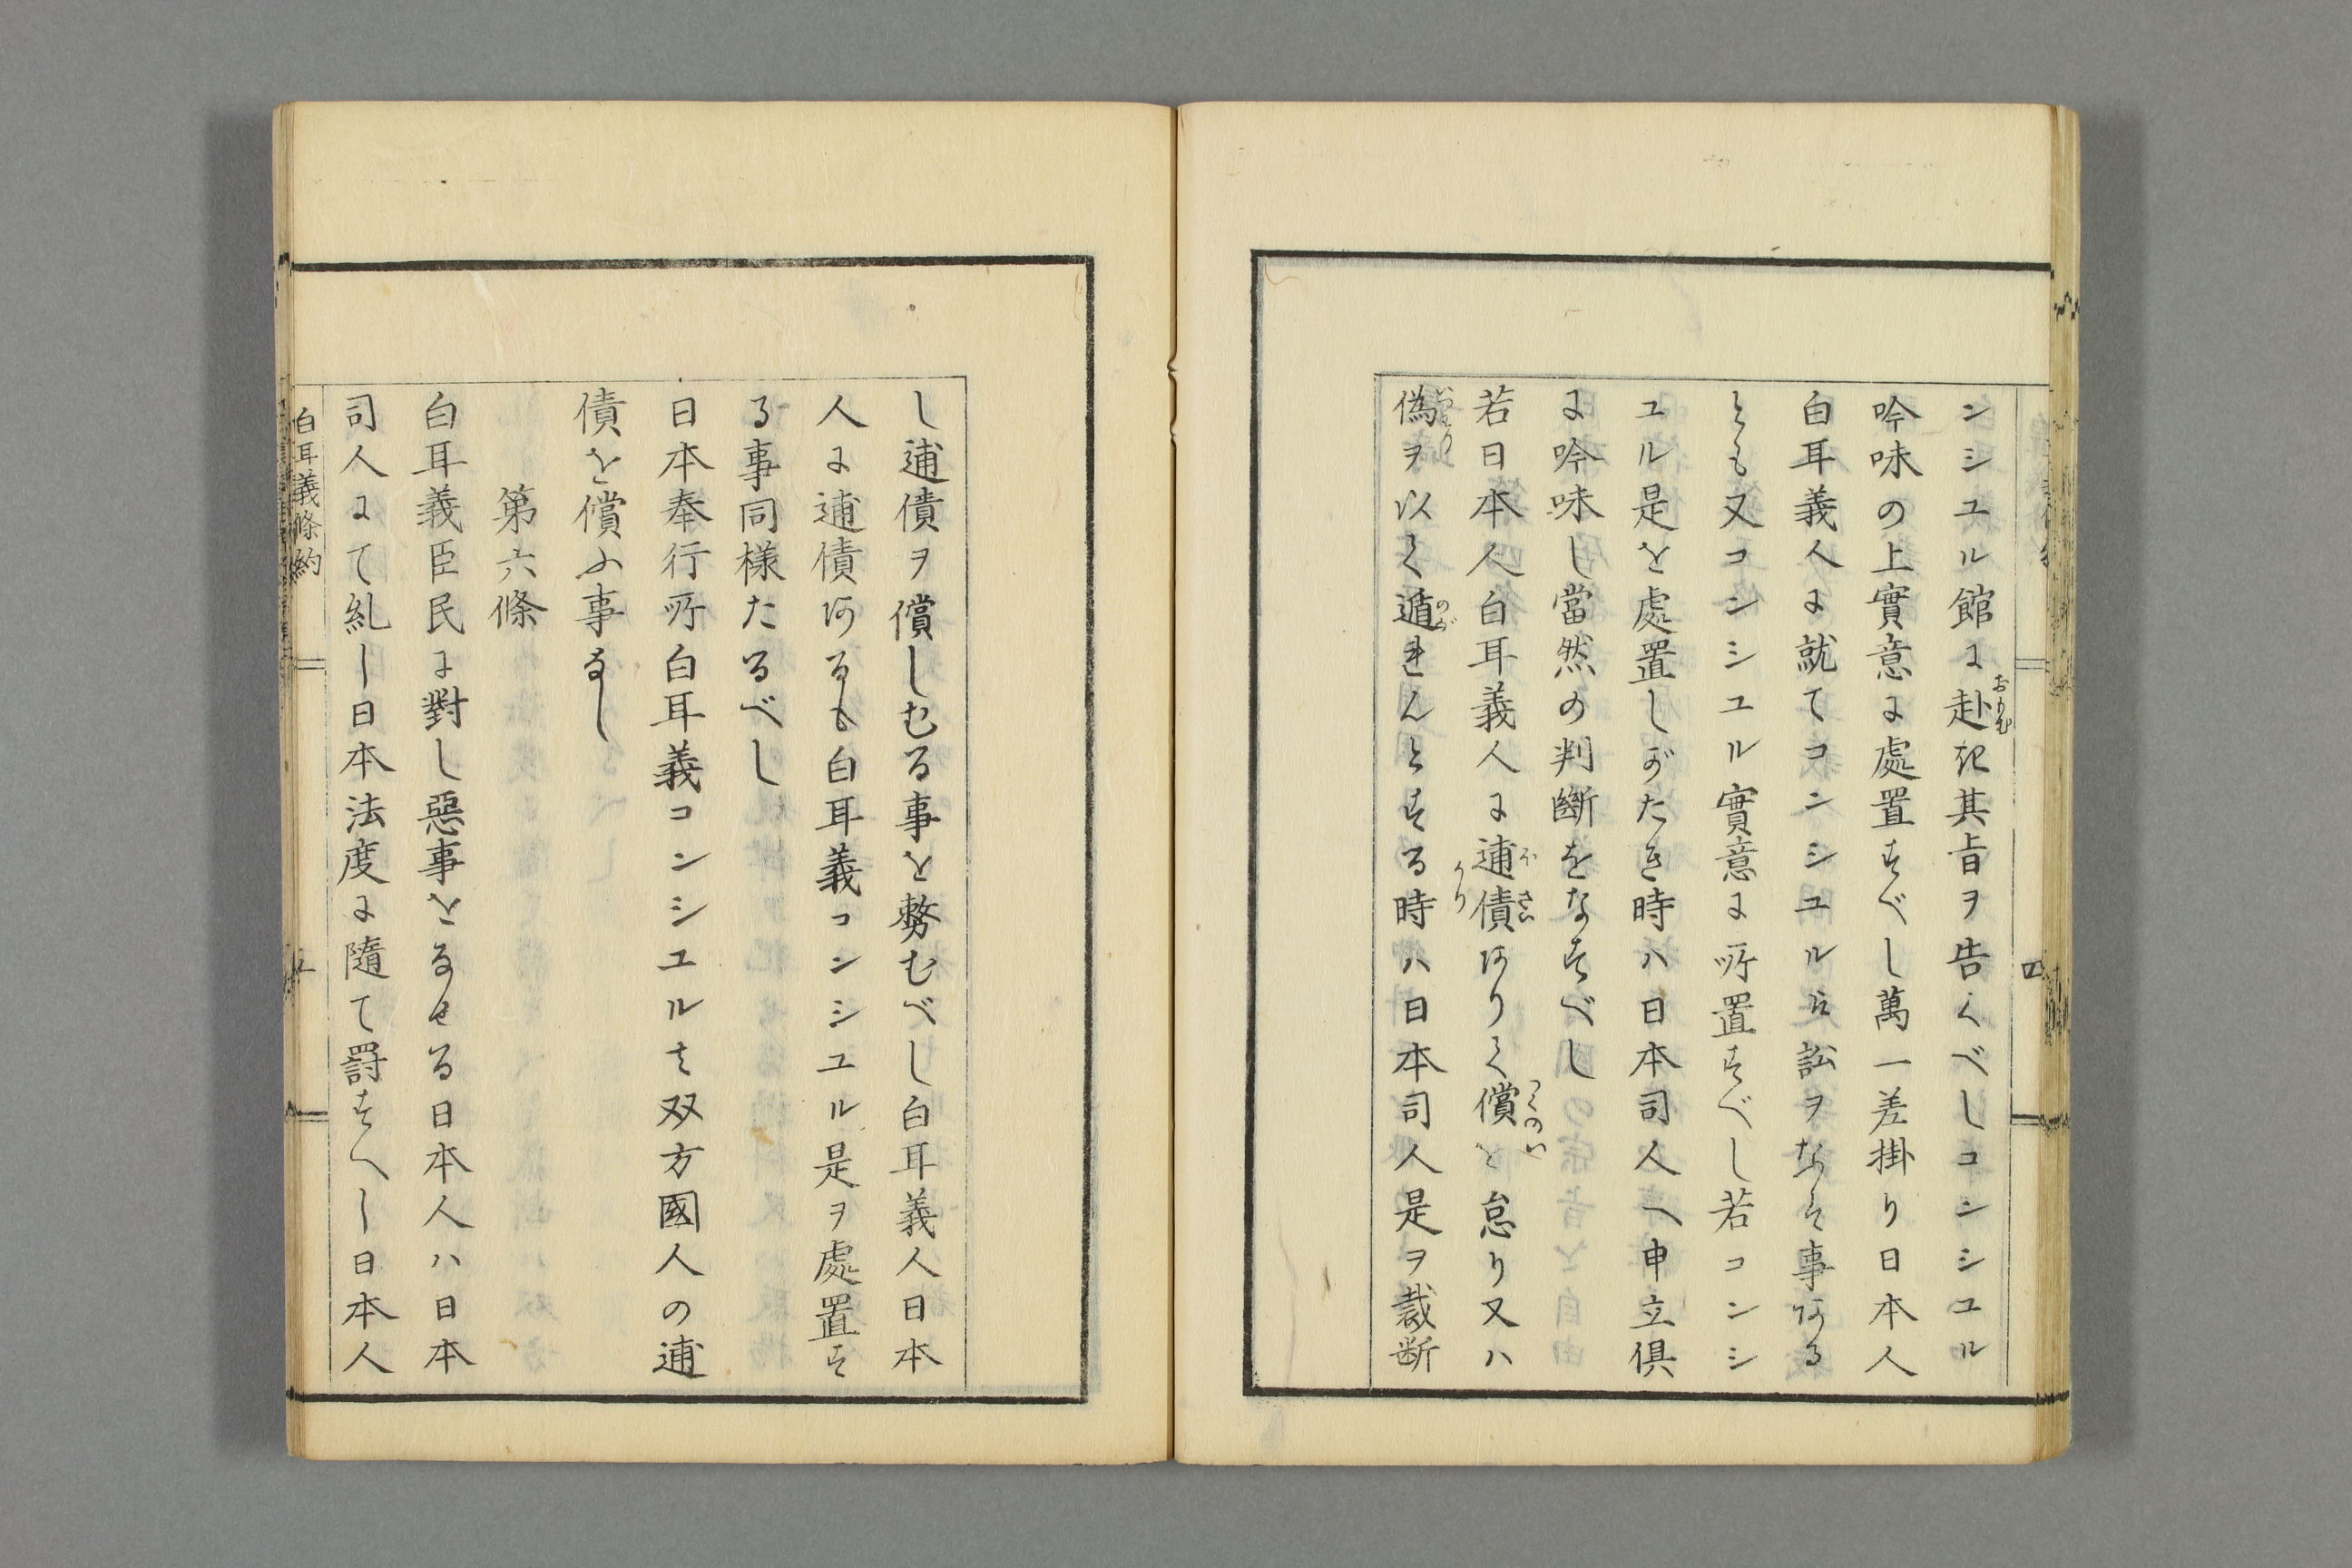 ンシユル館に赴き其旨ヲ告くべしコンシユル
吟味の上實意に處置すべし萬一差掛り日本人
白耳義人に就てコンシユルに訟ヲなす事ある
とも又コンシユル實意に所置すべし若コンシ
ユル是を處置しがたき時ハ日本司人へ申立倶
に吟味し當然の判斷をなすべし
若日本人白耳義人に逋債ありて償を怠り又ハ
偽ヲ以て遁れんとする時ハ日本司人是ヲ裁断
四
し逋債ヲ償しむる事を務むべし白耳義人日本
人に逋債あるも白耳義コンシユル是ヲ處置す
る事同様たるべし
日本奉行所白耳義コンシユルは双方國人の逋
債を償ふ事なし
第六條
白耳義臣民に對し惡事をなせる日本人ハ日本
司人にて糺し日本法度に隨て罸すへし日本人
白耳義條約